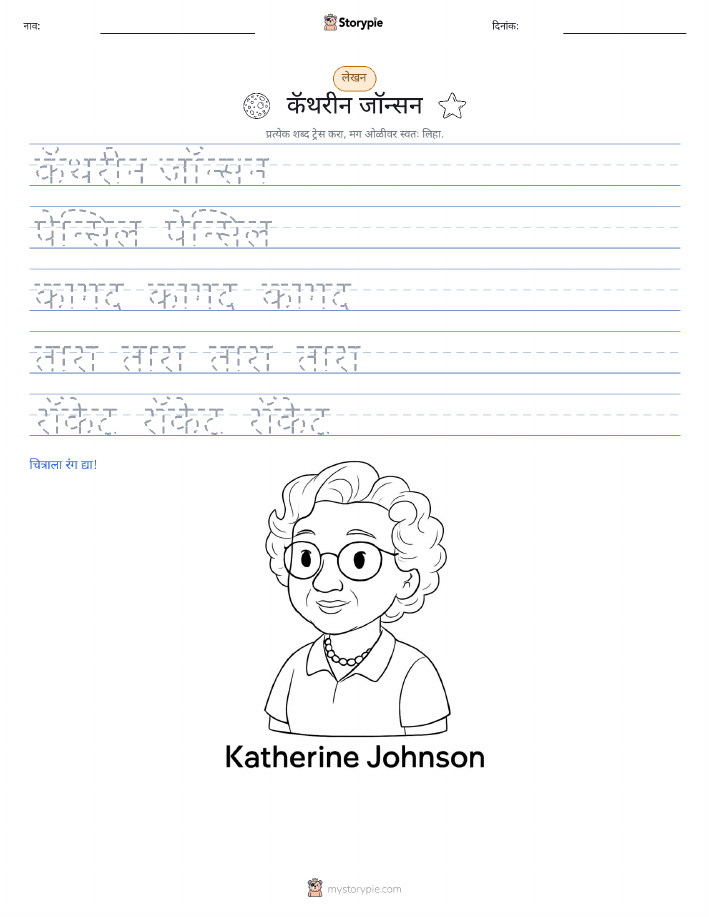 नाव:
Storypie
दिनांक:
लेखन
कॅथरीन जॉन्सन
प्रत्येक शब्द ट्रेस करा, मग ओळीवर स्वतः लिहा.
कॅथरीन जॉन्सन
पेन्सिल पेन्सिल
कागद कागद कागद
तारा तारा तारा तारा
रॉकेट रॉकेट रॉकेट
चित्राला रंग द्या!
Katherine Johnson
mystorypie.com